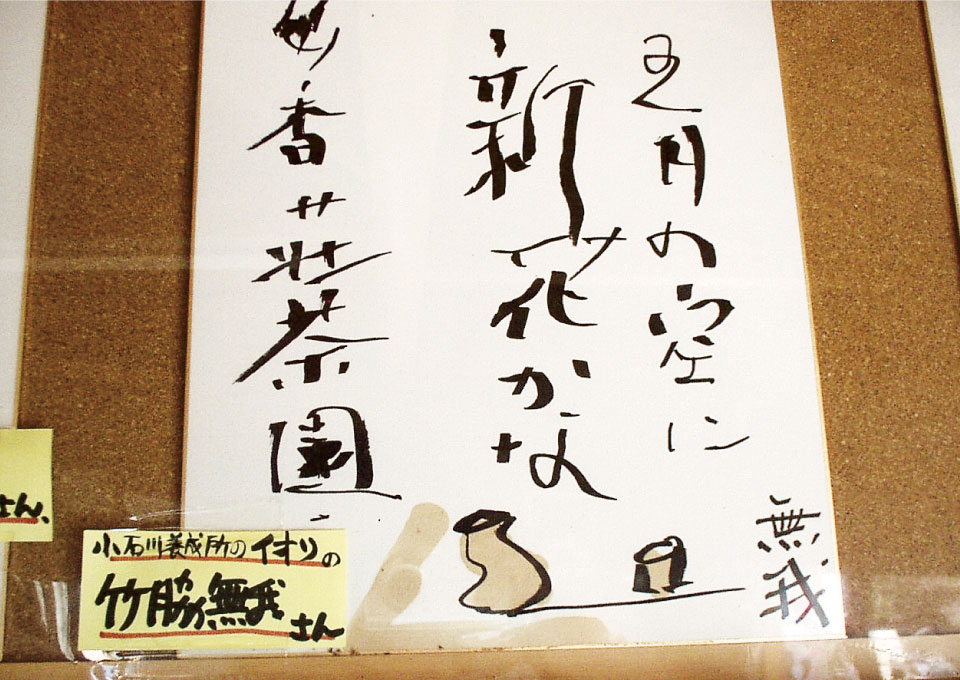 五月の空に
新花かな
妙香荘茶園
無我
小石川養成所のイオリの
竹脇無我さん
さん、